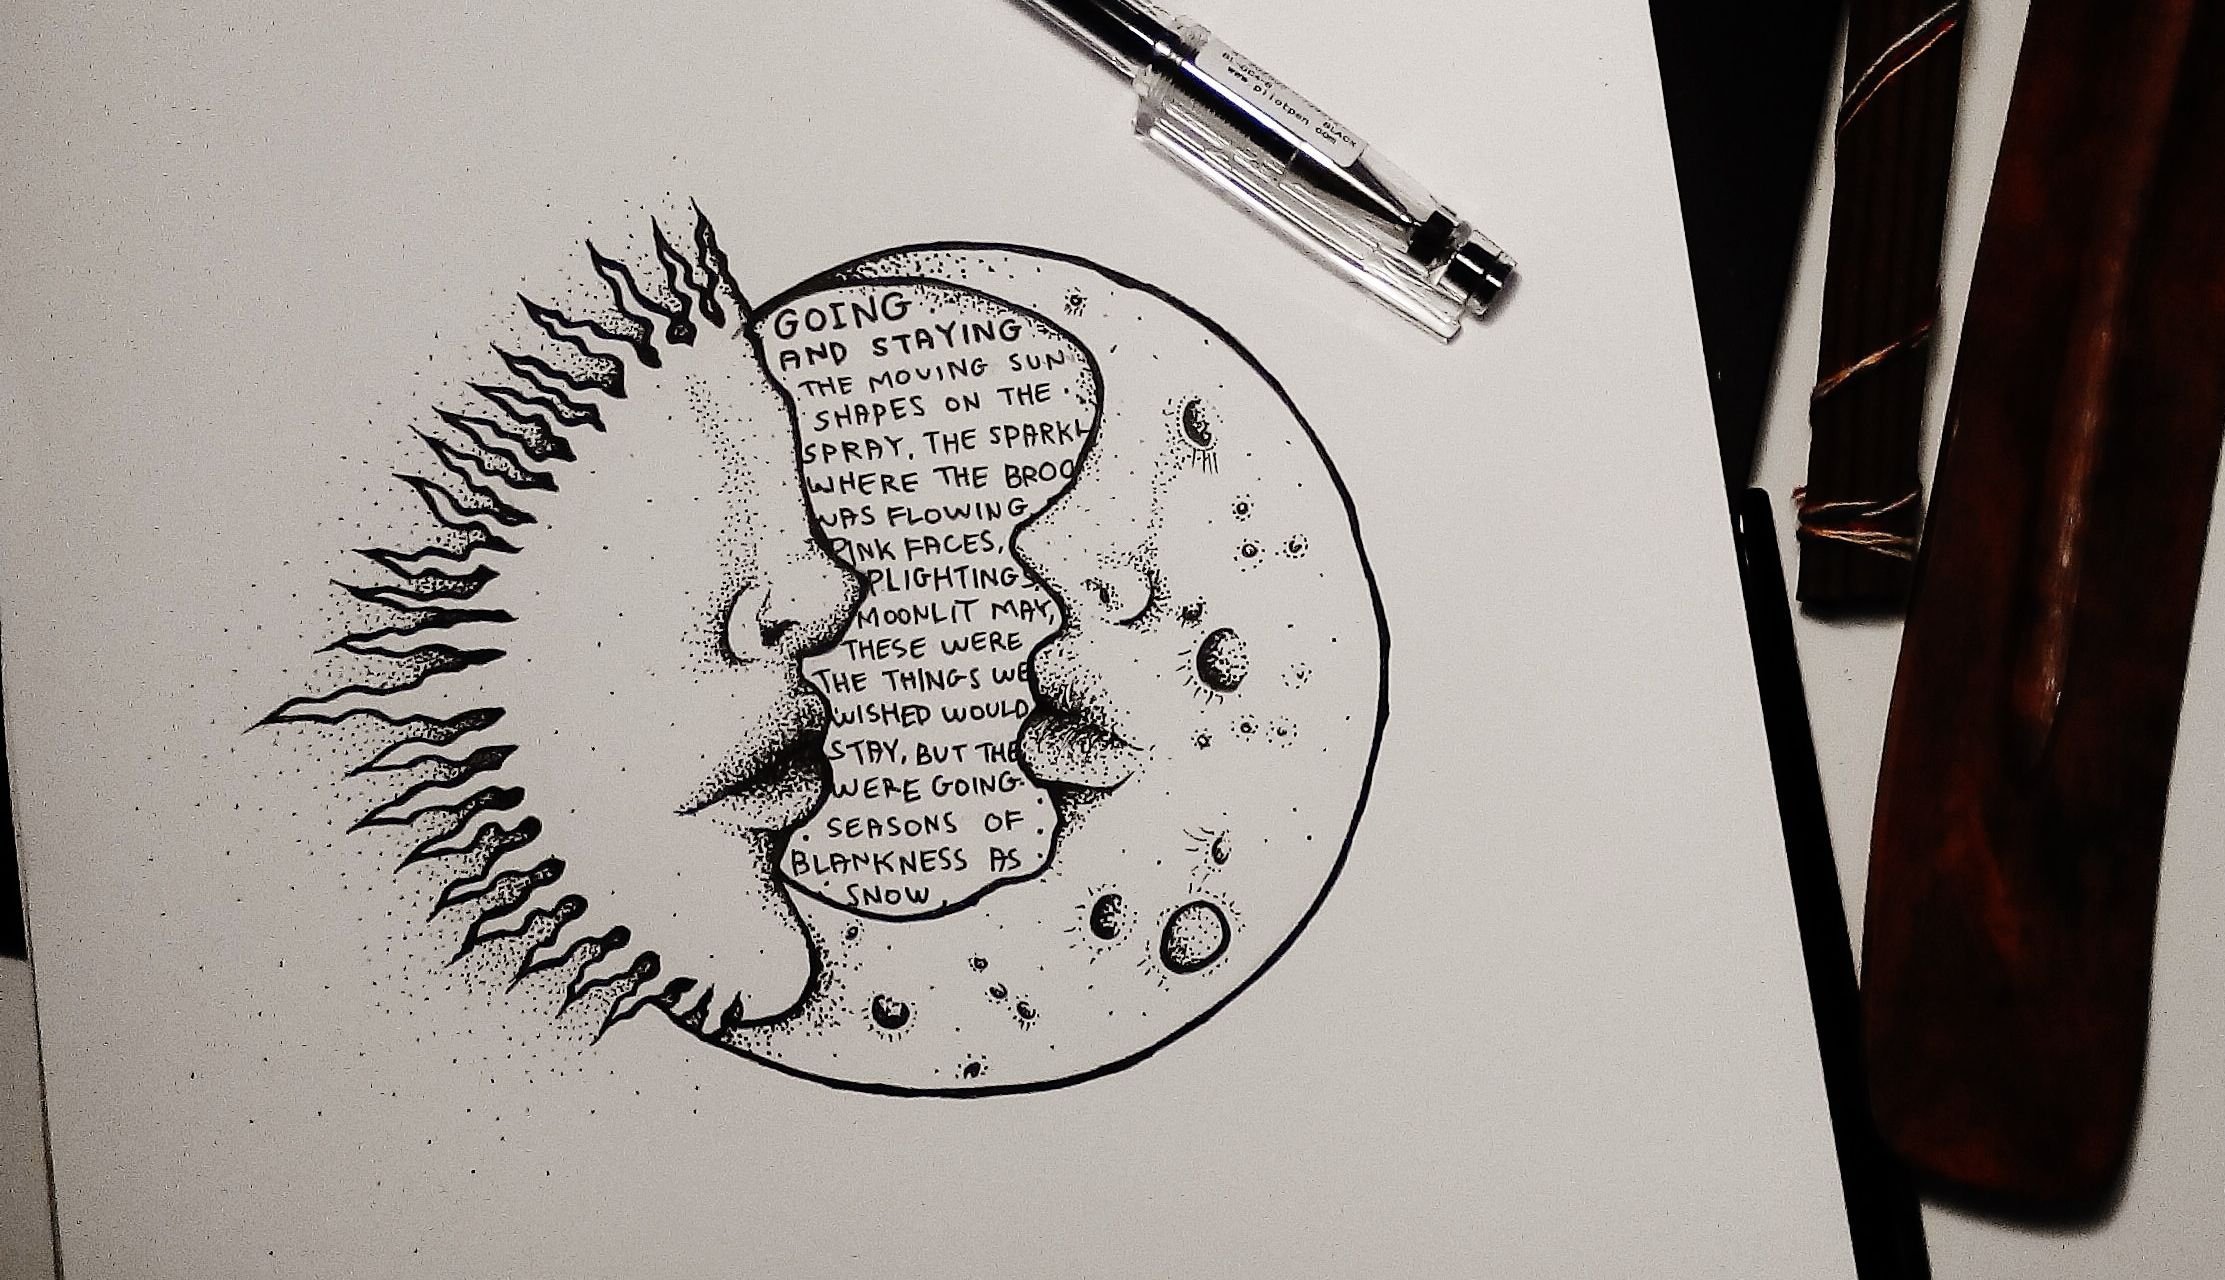 GOING
AND STAYING
THE MOVING SUN
SHAPES ON THE
SPRAY, THE SPARKL
WHERE THE BROO
WAS FLOWING,
PINK FACES,
PLIGHTINGS
MOONLIT MAY,
THESE WERE
THE THINGS WE
WISHED WOULD
STAY, BUT THE
WERE GOING.
SEASONS OF
BLANKNESS AS
SNOW,
BLACK
www.pilotpen.com